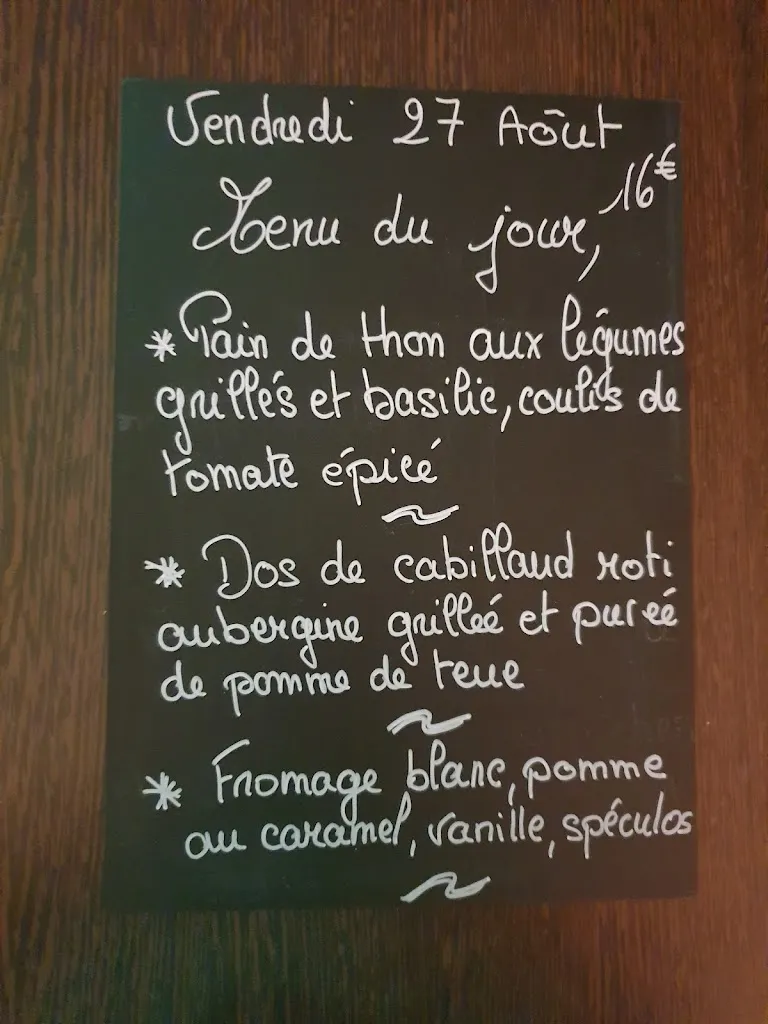 Vendredi 27 Août
Menu du jour, 16€
* Pain de thon aux légumes
grillés et basilic, coulis de
tomate épicé
~
* Dos de cabillaud roti
aubergine grilleé et pureé
de pomme de terre
~
* Fromage blanc, pomme
au caramel, vanille, spéculos
~